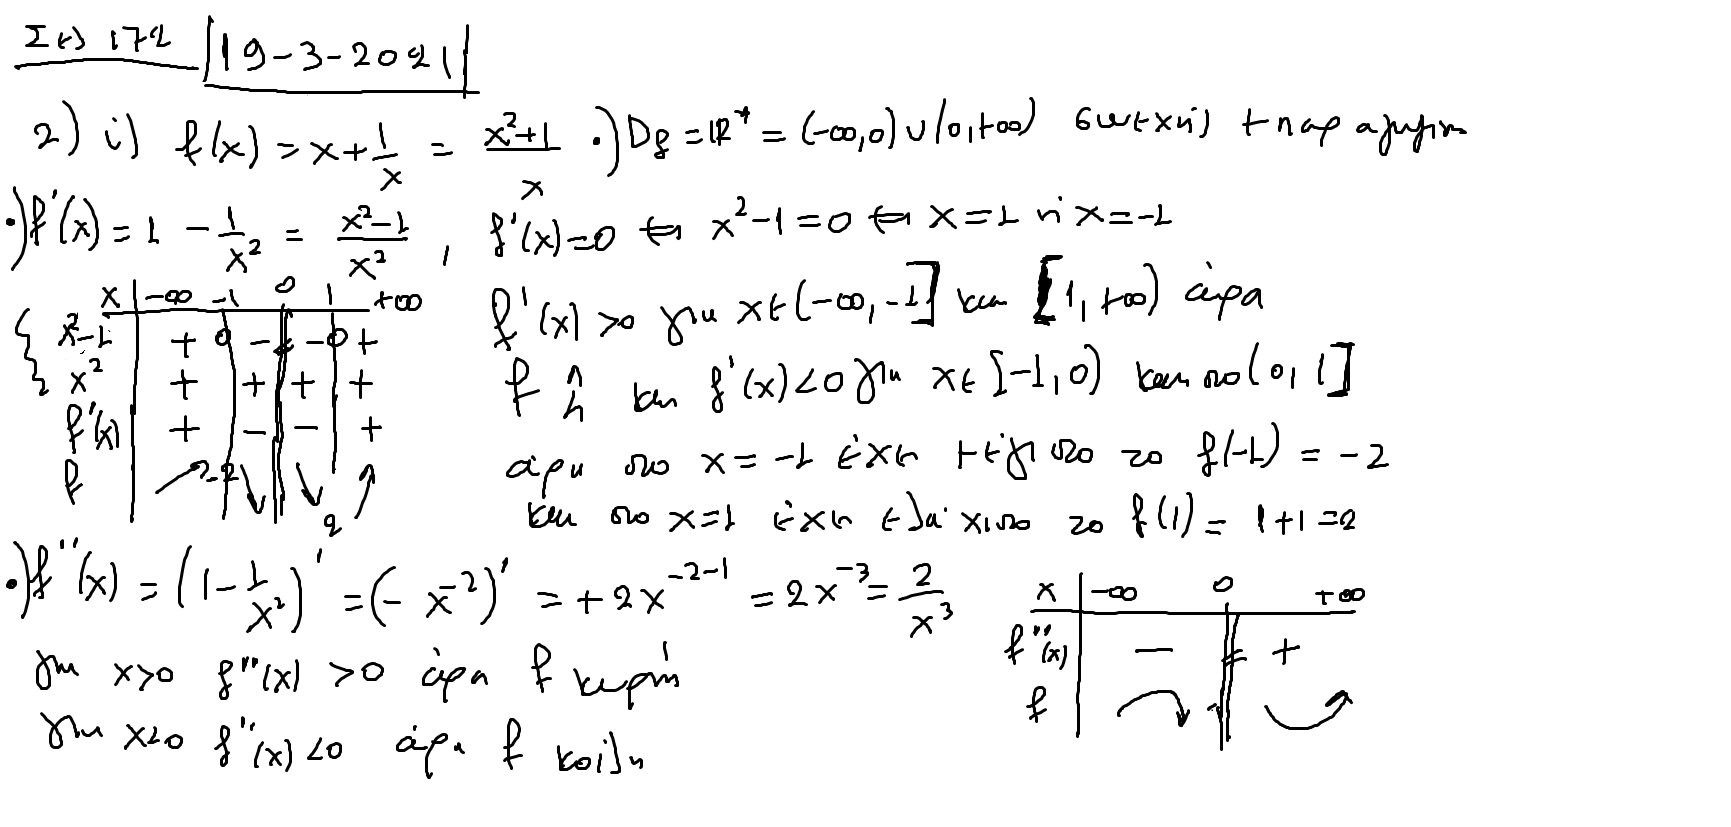 Σελ 172 | 19-3-2021 |
2) i) f(x) = x + 1/x = (x²+1)/x •) Df = ℝ* = (-∞,0) ∪ (0,+∞) συνεχής + παραγωγίσιμη
•) f'(x) = 1 - 1/x² = (x²-1)/x² , f'(x)=0 ⇔ x²-1=0 ⇔ x=1 ή x=-1
x | -∞ -1 0 1 +∞
x²-1 | + 0 - - 0 +
x² | + + + +
f'(x) | + - - +
f | ↗ -2 ↘ ↘ 2 ↗
f'(x) >0 για x ε (-∞,-1] και [1,+∞) άρα
f ↑ και f'(x) <0 για x ε [-1,0) και στο (0,1]
άρα στο x = -1 έχει μέγιστο το f(-1) = -2
και στο x=1 έχει ελάχιστο το f(1) = 1+1 =2
•) f''(x) = (1 - 1/x²)' = (- x⁻²)' = +2x⁻²⁻¹ = 2x⁻³ = 2/x³
x | -∞ 0 +∞
f''(x) | - +
f
για x>0 f''(x) >0 άρα f κυρτή
για x<0 f''(x) <0 άρα f κοίλη